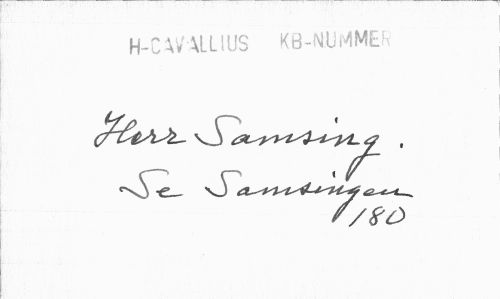 H-CAVALLIUS KB-NUMMER
Herr Samsing.
Se Samsingen
180